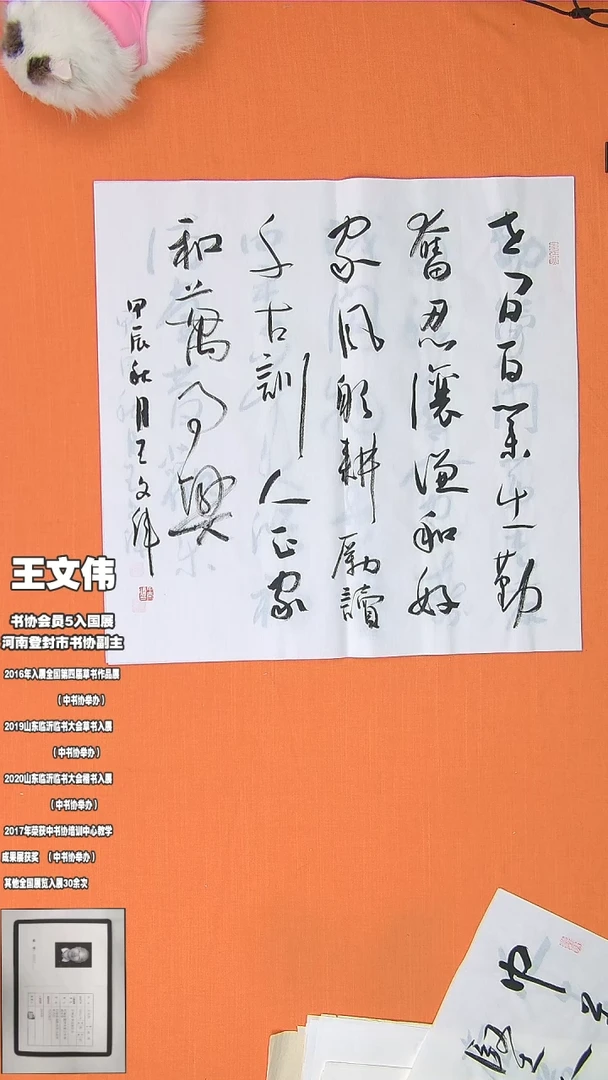 世間百業出勤
奮忍讓謙和好
家風躬耕勵讀
千古訓人正家
和萬事興
甲辰秋月王文偉
王文伟
书协会员5入国展
河南登封市书协副主
2016年入展全国第四届草书作品展
（中书协举办）
2019山东临沂临书大会草书入展
（中书协举办）
2020山东临沂临书大会楷书入展
（中书协举办）
2017年荣获中书协培训中心教学
成果展获奖 （中书协举办）
其他全国展览入展30余次
中